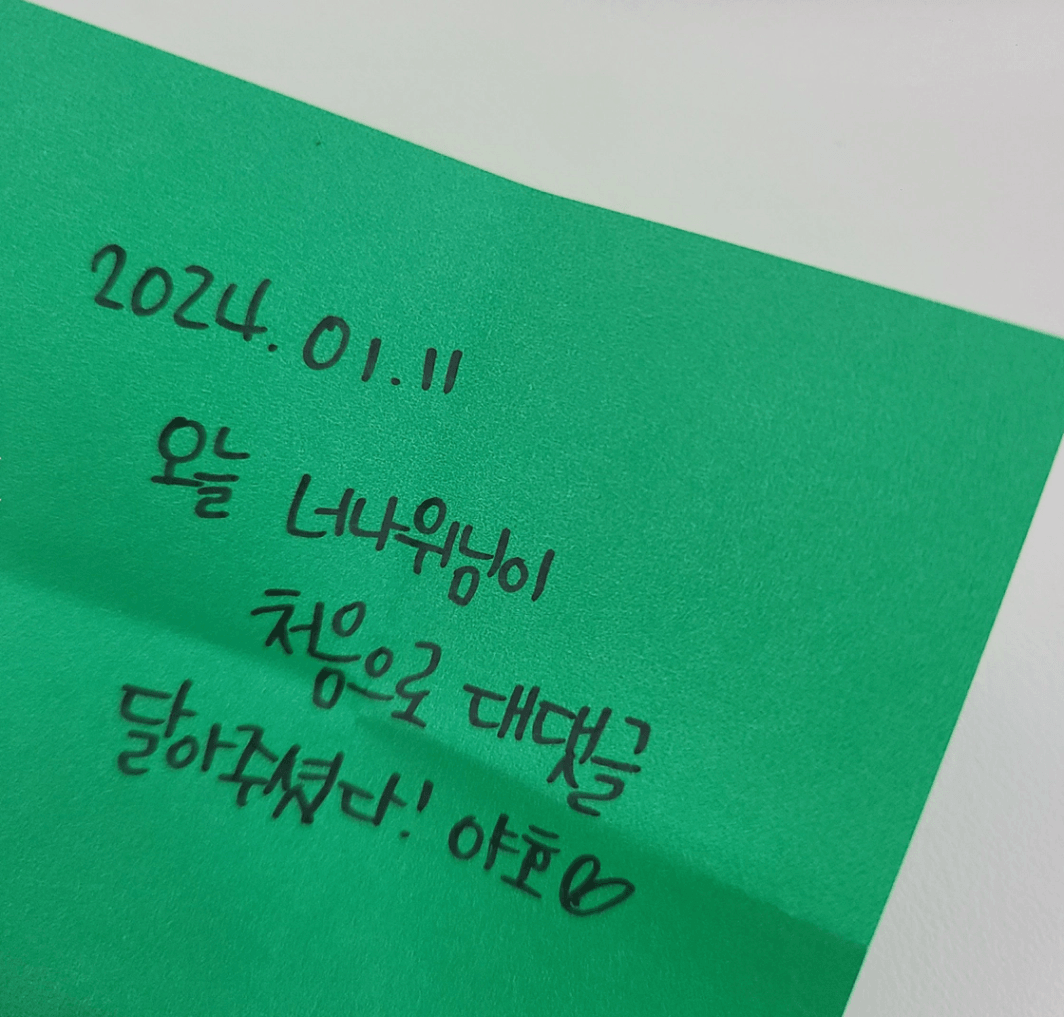 2024.01.11
오늘 너나위님이
처음으로 대댓글
달아주셨다! 야호♡